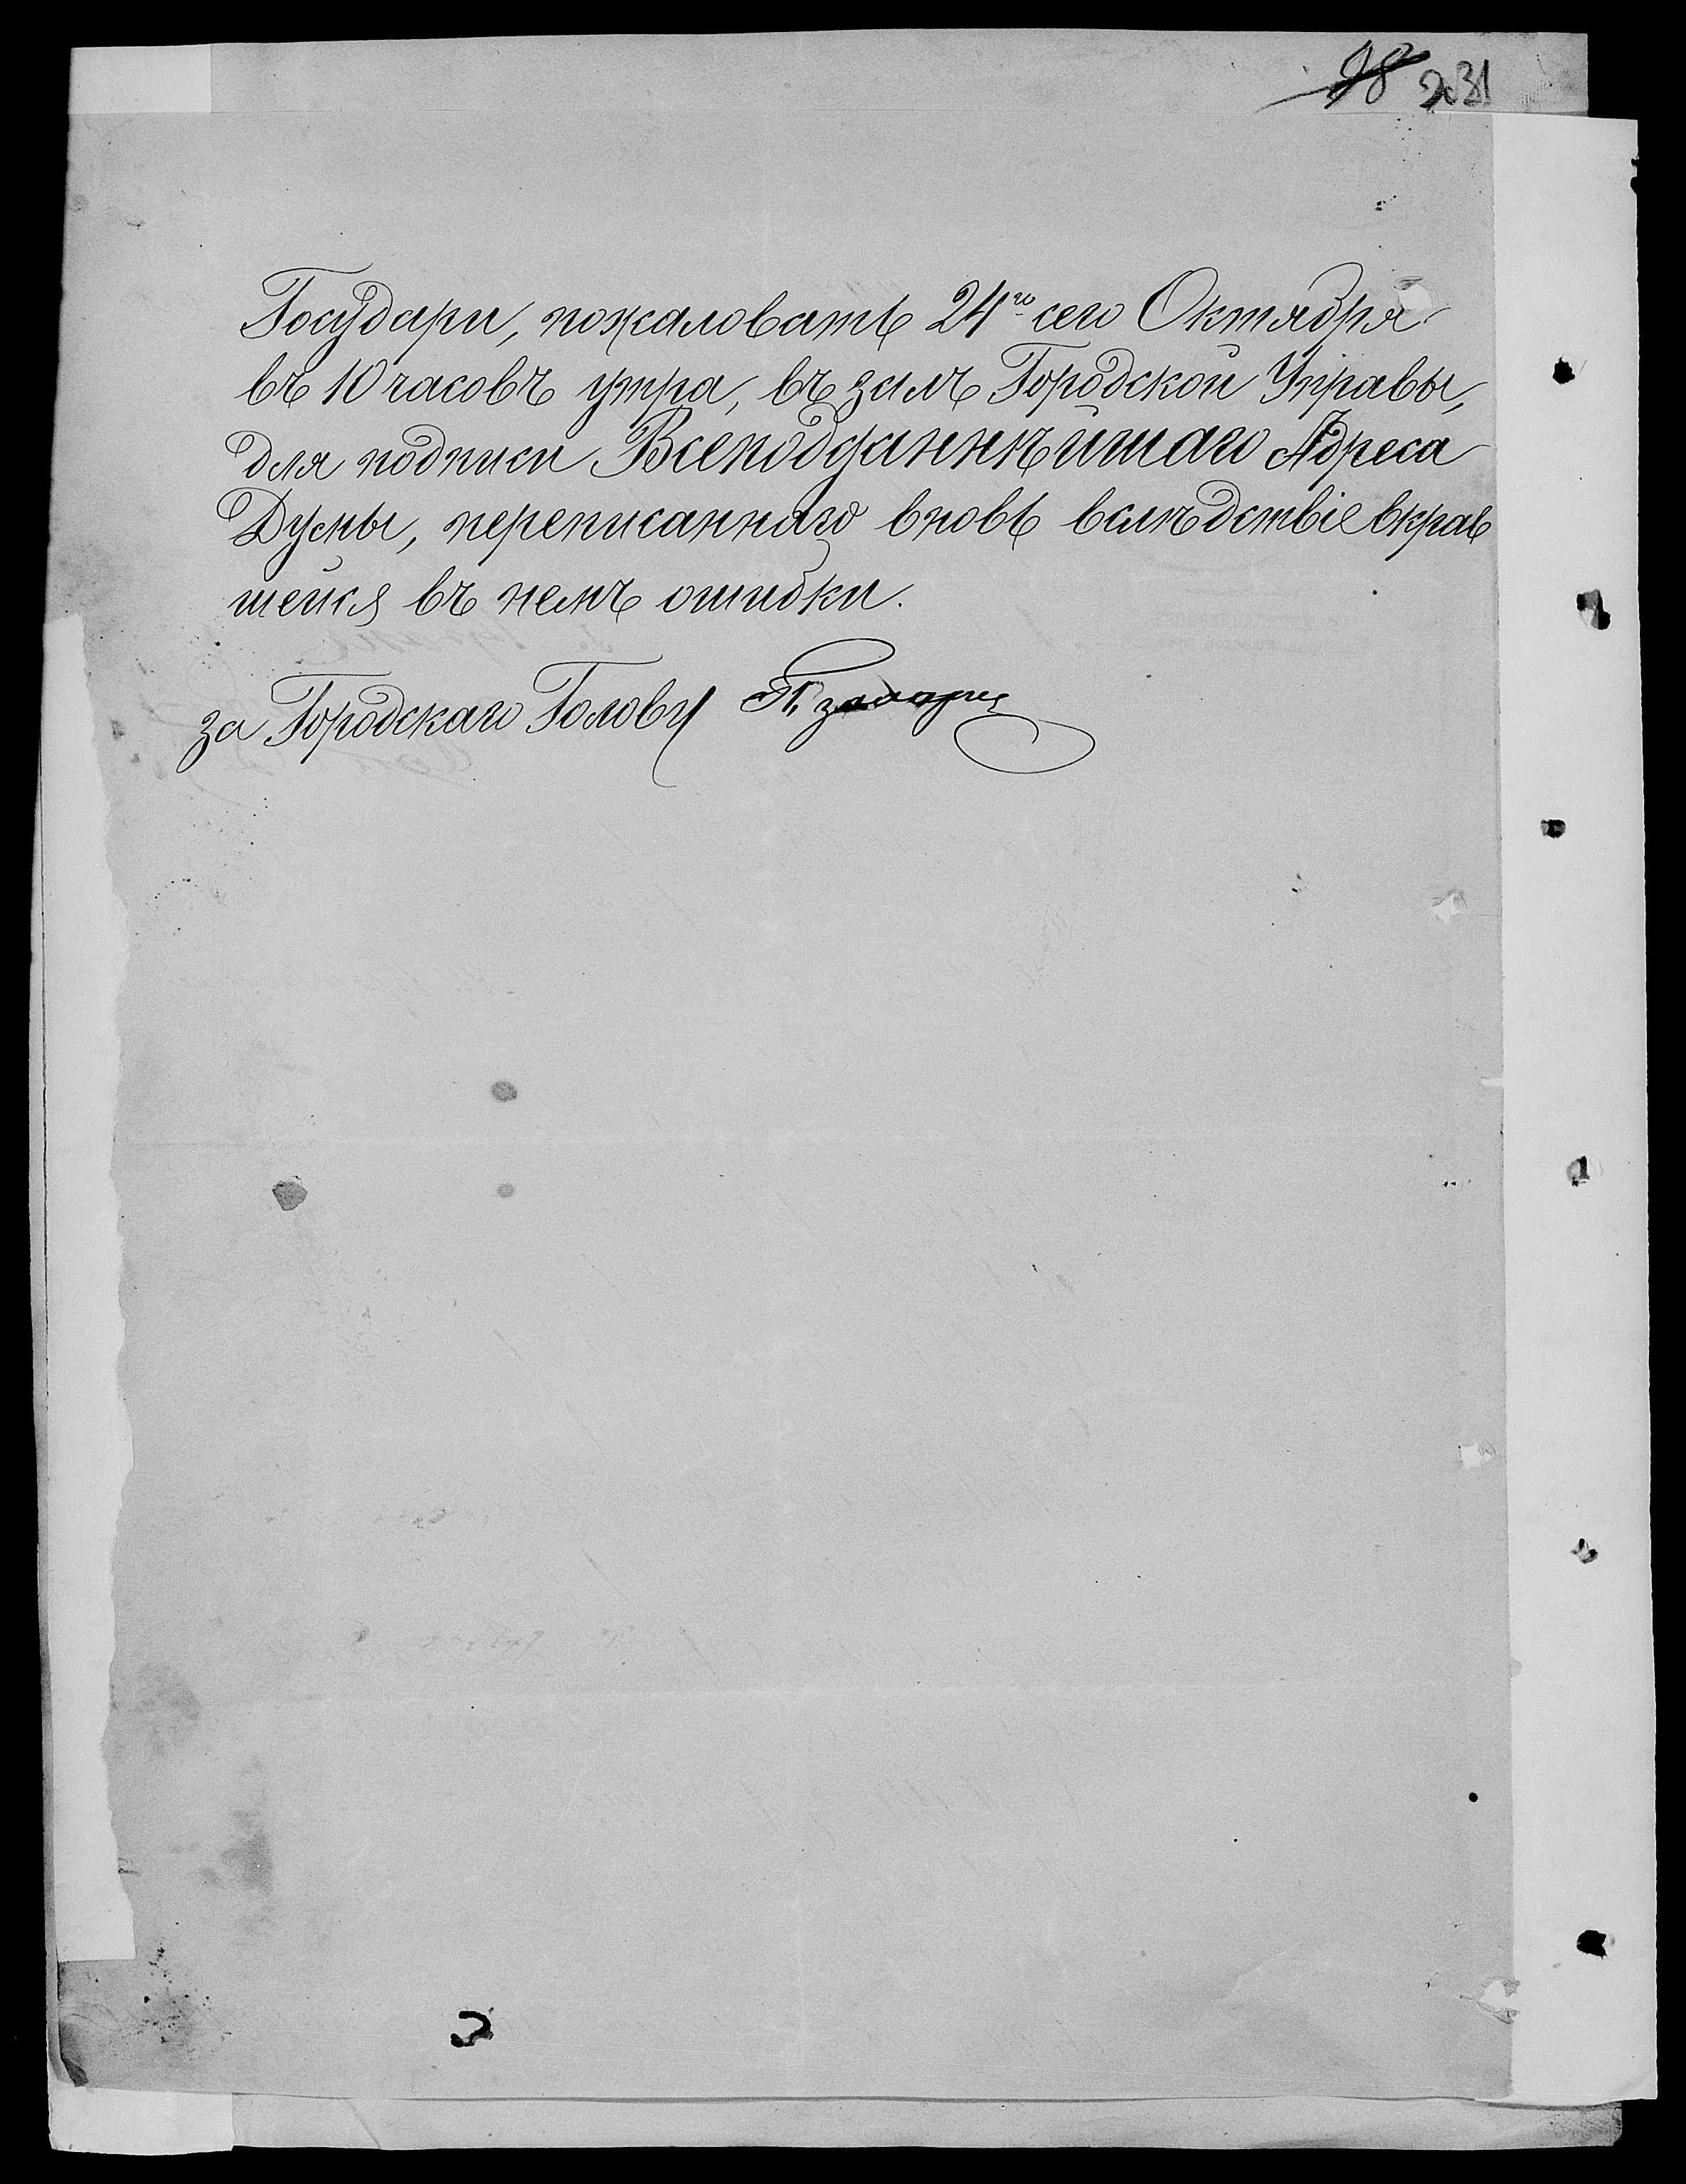 98 231
Государи, пожаловать 24го сего Октября
въ 10 часовъ утра, въ залъ Городской Управы,
для подписи Всеподданнѣйшаго Адреса
Думы, переписаннаго вновь вслѣдствіе вкрав
шейся въ немъ ошибки.
за Городскаго Голову